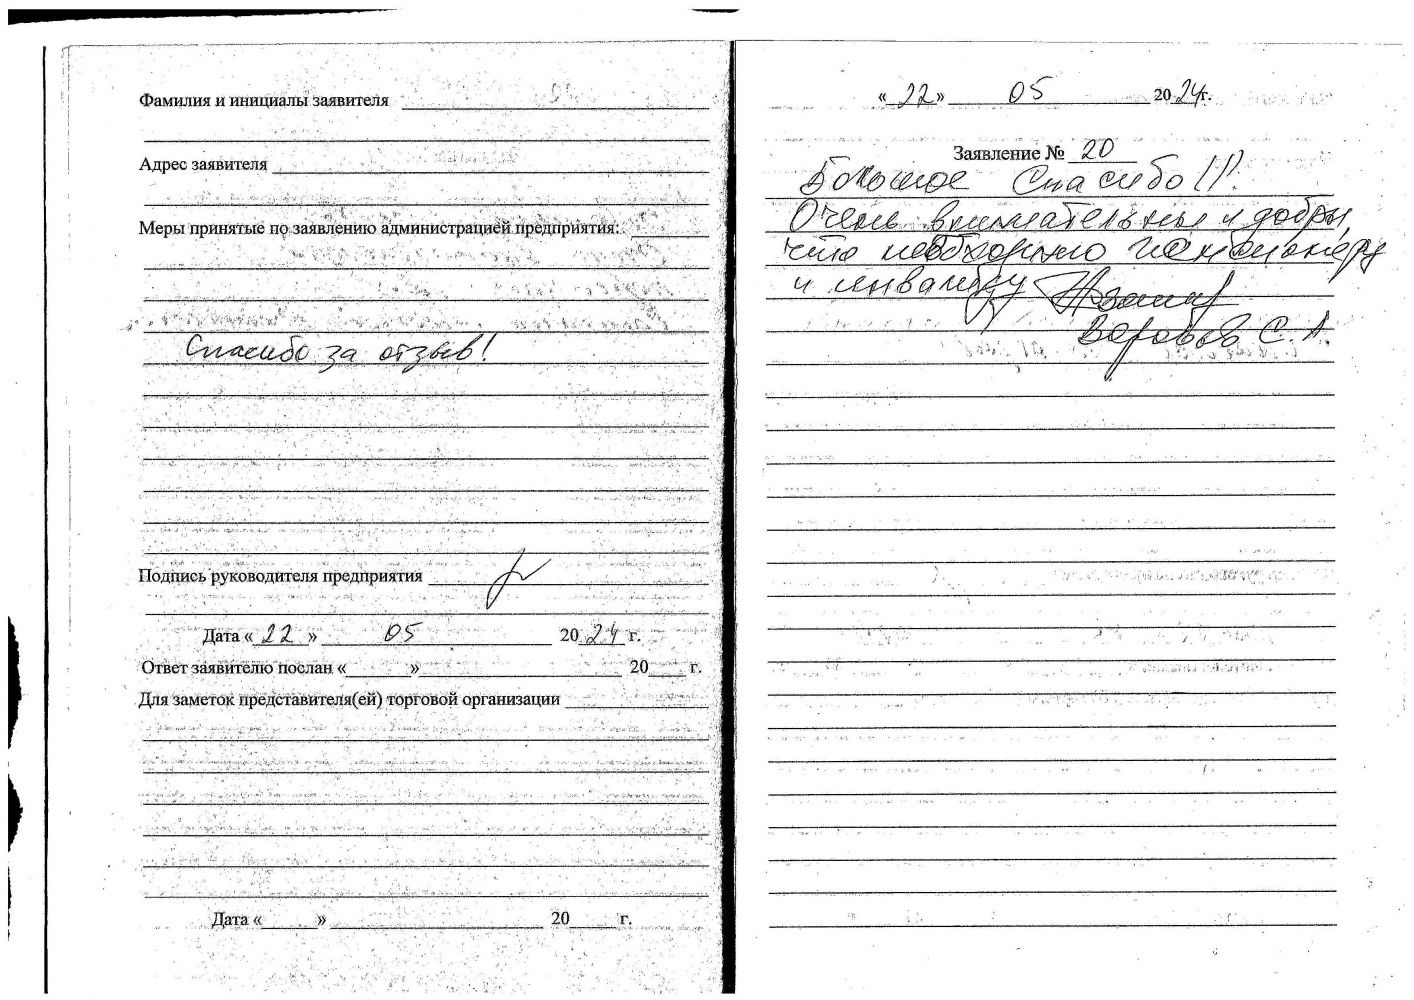 Фамилия и инициалы заявителя
Адрес заявителя
Меры принятые по заявлению администрацией предприятия:
Спасибо за отзыв!
Подпись руководителя предприятия
Дата « 22 » 05 20 24 г.
Ответ заявителю послан « » 20 г.
Для заметок представителя(ей) торговой организации
Дата « » 20 г.
« 22 » 05 20 24 г.
Заявление № 20
Большое Спасибо!!!
Очень внимательны и добры,
что необходимо пенсионеру
и инвалиду
Воробьев С. А.